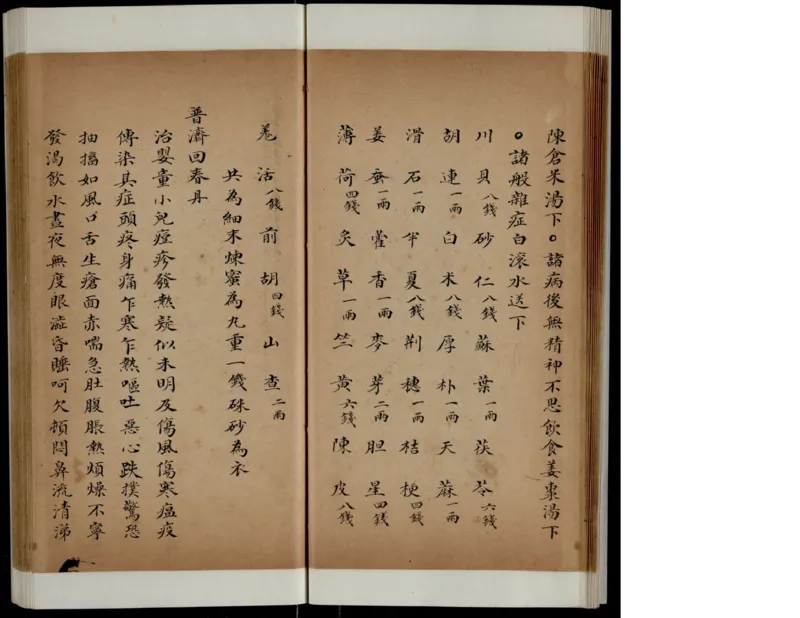 陳倉米湯下○諸病後無精神不思飲食姜棗湯下
○諸般雜症白滾水送下
川貝八錢砂仁八錢蘇葉一兩茯苓六錢
胡連一兩白朮八錢厚朴一兩天蔴一兩
滑石一兩半夏八錢荆穗一兩桔梗四錢
姜蚕一兩藿香一兩麥芽二兩胆星四錢
薄荷四錢炙草一兩竺黃六錢陳皮八錢
羗活八錢前胡四錢山查二兩
共為細末煉蜜為丸重一錢硃砂為衣
普濟回春丹
治嬰童小兒痘疹發熱疑似未明及傷風傷寒瘟疫
傳染其症頭疼身痛乍寒乍熱嘔吐惡心跌撲驚恐
抽搐如風口舌生瘡面赤喘急肚腹脹熱煩燥不寧
發渴飲水晝夜無度眼澁昏睡呵欠頓悶鼻流清涕